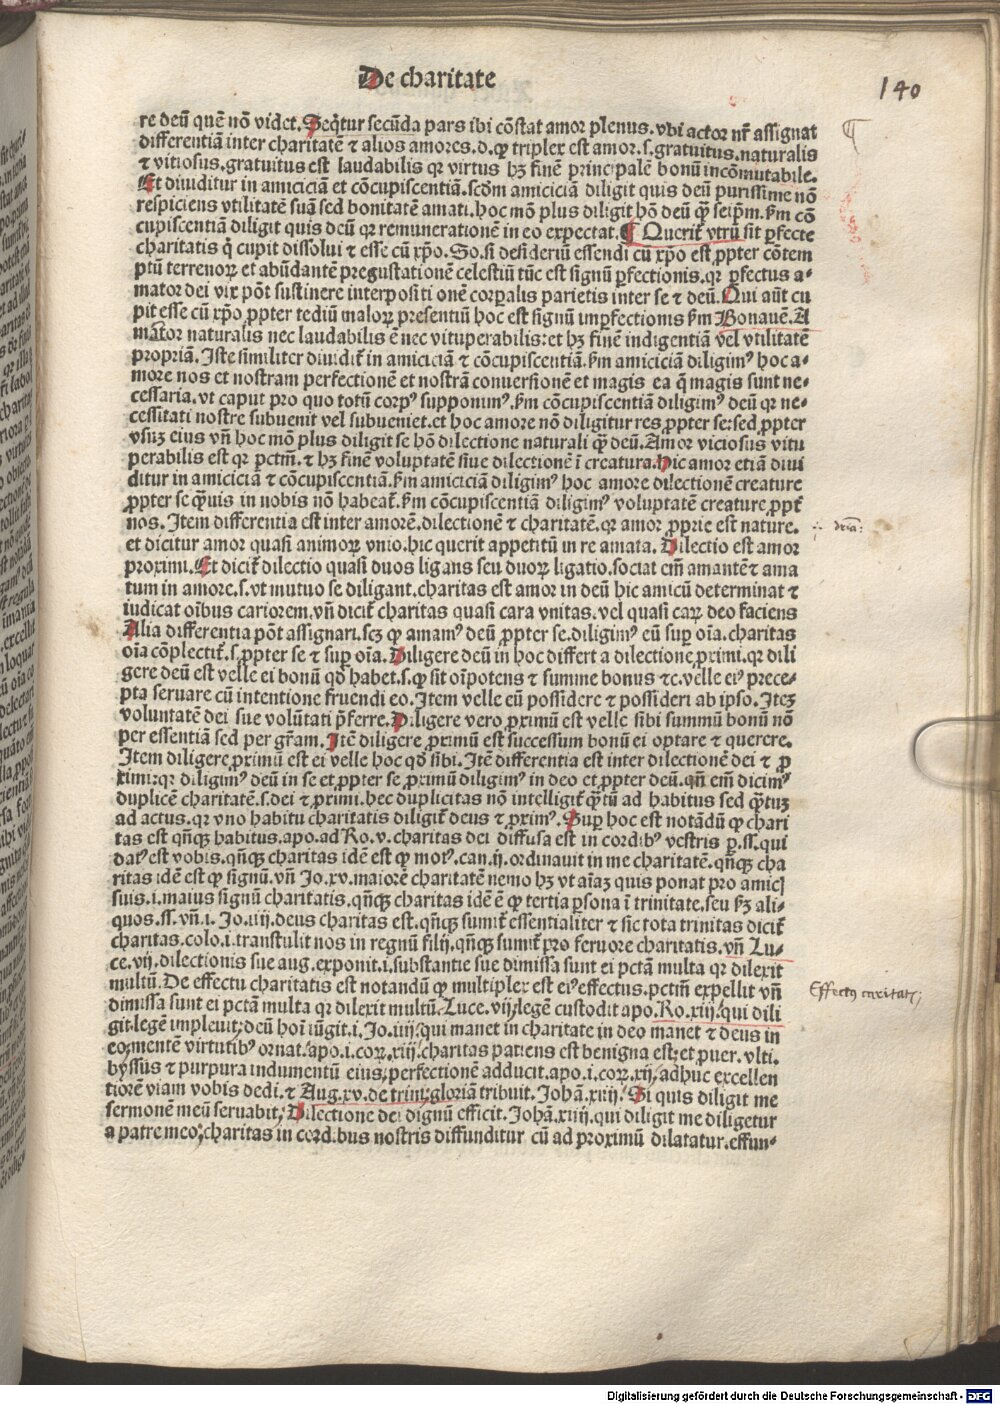 De charitate
140
re deū quē nō videt. Seq̄tur secūda pars ibi cōstat amor plenus. vbi actor nr̄ assignat
differentiā inter charitatē ⁊ alios amores. d. ꝙ triplex est amor. s. gratuitus. naturalis
⁊ vitiosus. gratuitus est laudabilis qꝛ virtus hꝫ finē principalē bonū incōmutabile.
Et diuiditur in amiciciā et cōcupiscentiā. scd̄m amiciciā diligit quis deū purissime nō
respiciens vtilitatē suā sed bonitatē amati. hoc mō plus diligit hō deū qꝫ̄ seip̄m. ẜm cō
cupiscentiā diligit quis deū qꝛ remunerationē in eo expectat. ¶ Querit᷑ vtrū sit ꝑfecte
charitatis q̇ cupit dissolui ⁊ esse cū xp̄o. So. si desideriū essendi cū xp̄o est ꝓpter cōtem
ptū terrenoꝝ et abūdantē pregustationē celestiū tūc est signū ꝑfectionis. qꝛ ꝑfectus a⸗
mator dei vix pōt sustinere interpositi onē corꝑalis parietis inter se ⁊ deū. Qui aūt cu
pit esse cū xp̄o ꝓpter tediū maloꝝ presentiū hoc est signū imꝑfectionis ẜm Bonauē. A
mator naturalis nec laudabilis ē nec vituperabilis: et hꝫ finē indigentiā vel vtilitatē
propriā. Iste similiter diuidit᷑ in amiciciā ⁊ cōcupiscentiā. ẜm amiciciā diligimꝰ hoc a⸗
more nos et nostram perfectionē et nostrā conuersionē et magis ea q̄ magis sunt ne⸗
cessaria. vt caput pro quo totū corpꝰ supponimꝰ. ẜm cōcupiscentiā diligimꝰ deū qꝛ ne⸗
cessitati nostre subuenit vel subueniet. et hoc amore nō diligitur res ꝓpter se: sed ꝓpter
vsuꝫ eius vn̄ hoc mō plus diligit se hō dilectione naturali qꝫ̄ deū. Amor viciosus vitu
perabilis est qꝛ pctm̄. ⁊ hꝫ finē voluptatē siue dilectionē ī creatura. Hic amor etiā diui
ditur in amiciciā ⁊ cōcupiscentiā. ẜm amiciciā diligimꝰ hoc amore dilectionē creature
ꝓpter se qꝫ̄uis in nobis nō habeat᷑. ẜm cōcupiscentiā diligimꝰ voluptatē creature ꝓpt᷑
nos. Item differentia est inter amorē. dilectionē ⁊ charitatē. qꝛ amor ꝓprie est nature.
dr̄ia:
et dicitur amor quasi animoꝝ vnio. hic querit appetitū in re amata. Dilectio est amor
proximi. Et dicit᷑ dilectio quasi duos ligans seu duoꝝ ligatio. sociat em̄ amantē ⁊ ama
tum in amore. s. vt mutuo se diligant. charitas est amor in deū hic amicū determinat ⁊
iudicat oībus cariorem. vn̄ dicit᷑ charitas quasi cara vnitas. vel quasi caꝝ deo faciens
Alia differentia pōt assignari. scꝫ ꝙ amamꝰ deū ꝓpter se. diligimꝰ eū suꝑ oīa. charitas
oīa cōplectit᷑. s. ꝓpter se ⁊ suꝑ oīa. Diligere deū in hoc differt a dilectione ꝓximi. qꝛ dili
gere deū est velle ei bonū qd̄ habet. s. ꝙ sit oīpotens ⁊ summe bonus ⁊c. velle eiꝰ prece⸗
pta seruare cū intentione fruendi eo. Item velle eū possidere ⁊ possideri ab ipso. Iteꝫ
voluntatē dei sue volūtati p̄ferre. Diligere vero ꝓximū est velle sibi summū bonū nō
per essentiā sed per gr̄am. Itē diligere ꝓximū est successum bonū ei optare ⁊ querere.
Item diligere ꝓximū est ei velle hoc qd̄ sibi. Itē differentia est inter dilectionē dei ⁊ ꝓ
ximi: qꝛ diligimꝰ deū in se et ꝓpter se ꝓximū diligimꝰ in deo et ꝓpter deū. qn̄ em̄ dicimꝰ
duplicē charitatē. s. dei ⁊ ꝓximi. hec duplicitas nō intelligit᷑ qꝫ̄tū ad habitus sed qꝫ̄tuꝫ
ad actus. qꝛ vno habitu charitatis diligit᷑ deus ⁊ ꝓximꝰ. Suꝑ hoc est notādū ꝙ chari
tas est qn̄qꝫ habitus. apo. ad Ro. v. charitas dei diffusa est in cordibꝰ vestris ꝑ. ss. qui
datꝰ est vobis. qn̄qꝫ charitas idē est ꝙ motꝰ. can. ij. ordinauit in me charitatē. qn̄qꝫ cha
ritas idē est ꝙ signū. vn̄ Jo. xv. maiorē charitatē nemo hꝫ vt aīaꝫ quis ponat pro amicꝭ
suis. i. maius signū charitatis. qn̄qꝫ charitas idē ē ꝙ tertia ꝑsona ī trinitate. seu ẜꝫ ali⸗
quos. ss. vn̄. i. Jo. iiij. deus charitas est. qn̄qꝫ sumit᷑ essentialiter ⁊ sic tota trinitas dicit᷑
charitas. colo. i. transtulit nos in regnū filij. qn̄qꝫ sumit᷑ pro feruore charitatis. vn̄ Lu⸗
ce. vij. dilectionis sue aug. exponit. i. substantie sue dimissa sunt ei pctā multa qꝛ dilexit
multū. De effectu charitatis est notandū ꝙ multiplex est eiꝰ effectus. pctm̄ expellit vn̄
Effectus caritatis
dimissa sunt ei pctā multa qꝛ dilexit multū. Luce. vij. legē custodit apo. Ro. xiij. qui dili
git. legē impleuit. deū hoī iūgit. i. Jo. iiij. qui manet in charitate in deo manet ⁊ deus in
eo. mentē virtutibꝰ ornat. apo. i. coꝝ. xiij. charitas patiens est benigna est. et puer. vlti.
byssus ⁊ purpura indumentū eius. perfectionē adducit. apo. i. coꝝ. xij. adhuc excellen
tiorē viam vobis dedi. ⁊ Aug. xv. de trini. gloriā tribuit. Johā. xiiij. Si quis diligit me
sermonē meū seruabit. Dilectione dei dignū efficit. Johā. xiiij. qui diligit me diligetur
a patre meo. charitas in cord.bus nostris diffunditur cū ad proximū dilatatur. effun⸗
Digitalisierung gefördert durch die Deutsche Forschungsgemeinschaft - DFG